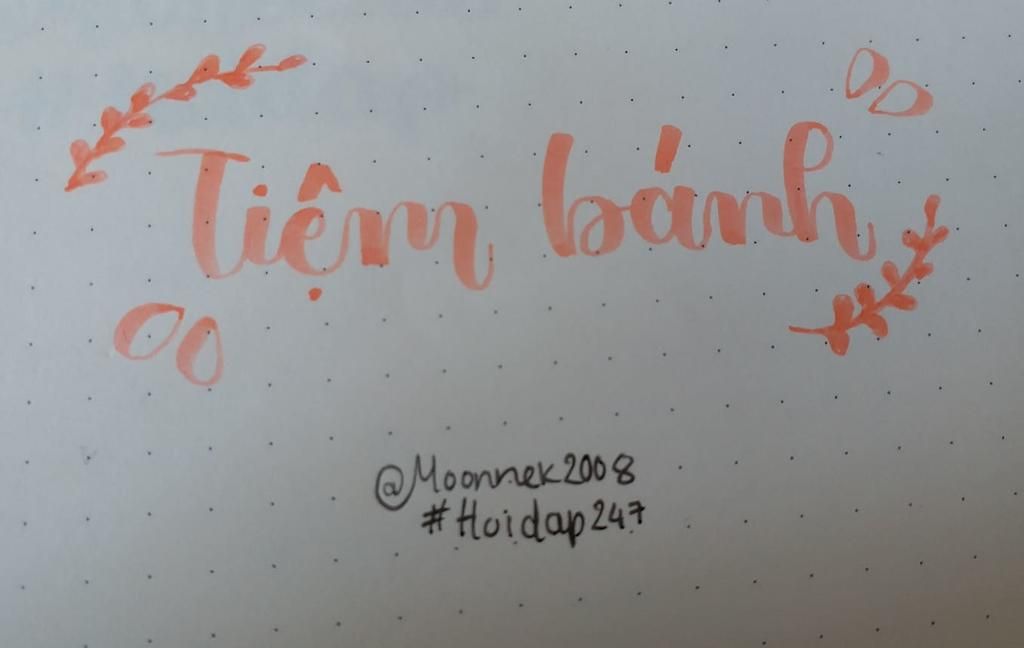 Tiệm bánh
@Moonnek2008
#Hoidap247